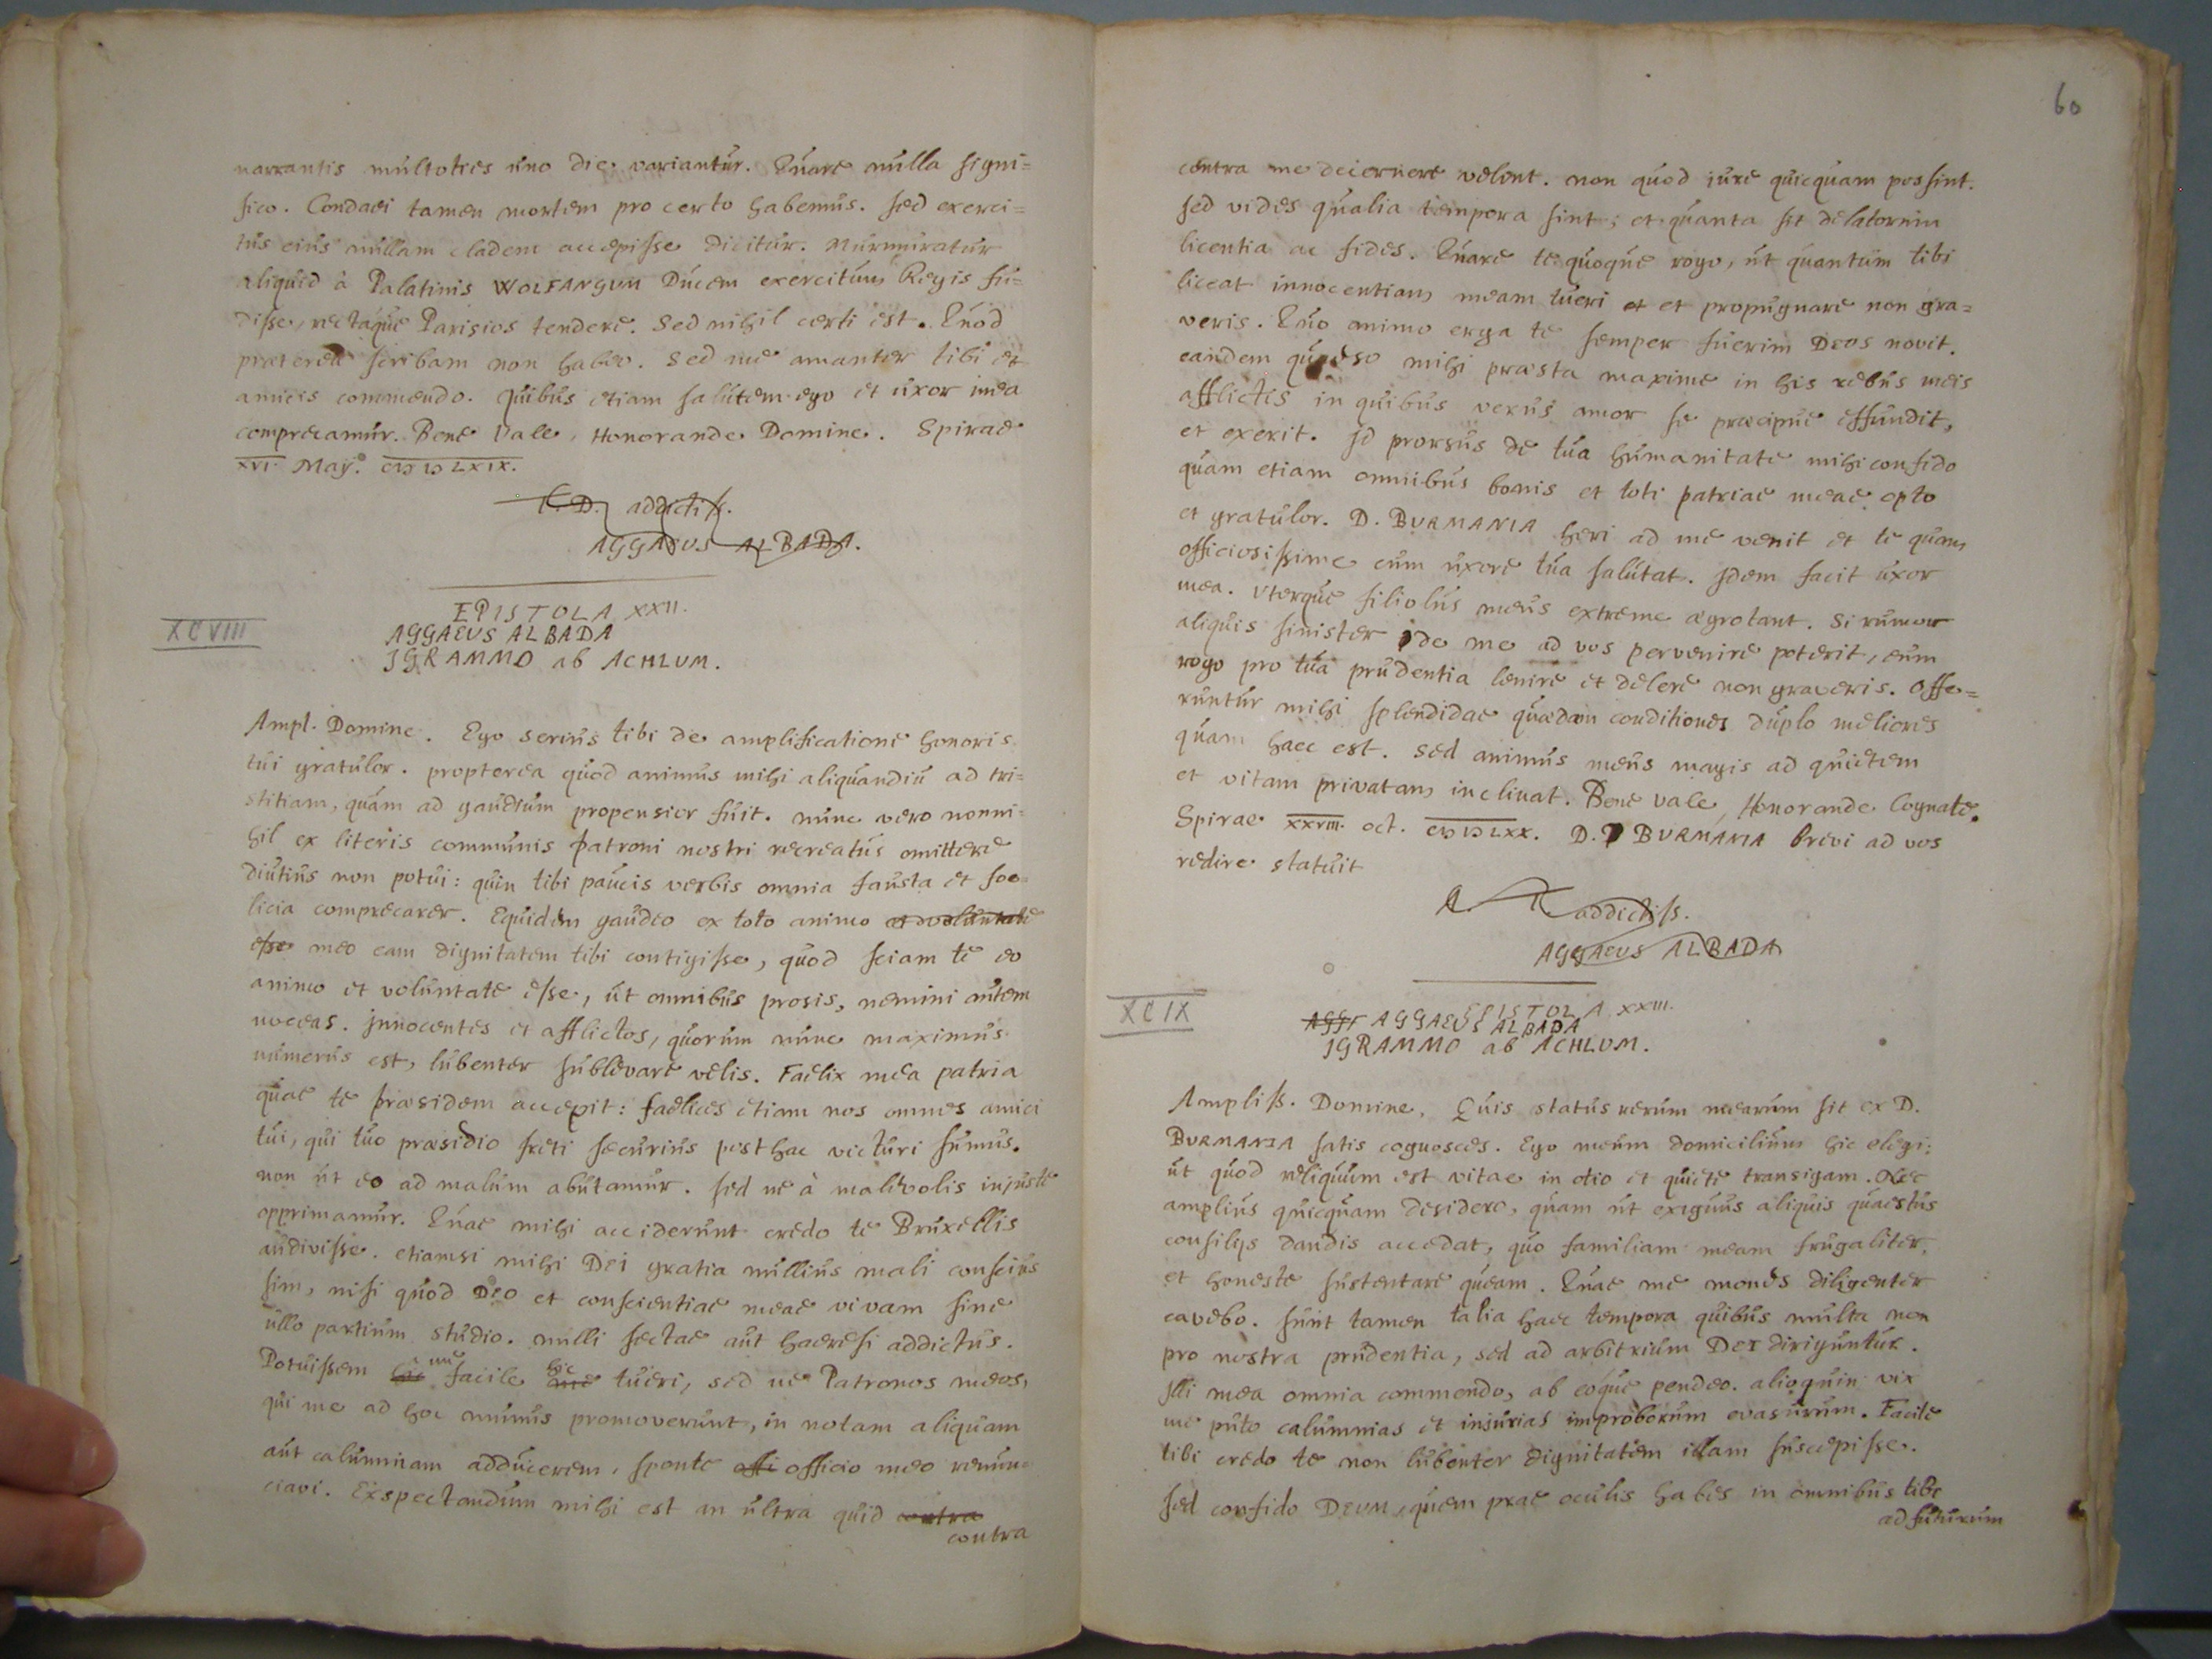 narrantis multoties uno die variantur. Quare nulla signi=
fico. Condaei tamen mortem pro certo habemus. sed exerci=
tus eius nullam cladem accepisse dicitur. Murmuratur
aliquid à Palatinis WOLFANGUM Ducem exercitum Regis fu=
disse, rectaque Parisios tendere. Sed nihil certi est. Quod
praeterea scribam non habeo. Sed me amanter tibi et
amicis commendo. quibus etiam salutem ego et uxor mea
comprecamur. Bene Vale, Honorande Domine. Spirae
XVI. Maij. CIƆ IƆ LXIX.
T. D. addictiss.
AGGAEUS ALBADA.
EPISTOLA XXII.
XCVIII
AGGAEUS ALBADA
IGRAMMO ab ACHLUM.
Ampl. Domine. Ego serius tibi de amplificatione honoris
tui gratulor. propterea quod animus mihi aliquandiu ad tri=
stitiam, quam ad gaudium propensior fuit. nunc vero nonni=
hil ex literis communis patroni nostri recreatus omittere
diutius non potui: quin tibi paucis verbis omnia fausta et foe=
licia comprecarer. Equidem gaudeo ex toto animo et voluntate
esse meo eam dignitatem tibi contigisse, quod sciam te eo
animo et voluntate esse, ut omnibus prosis, nemini autem
noceas. Innocentes et afflictos, quorum nunc maximus
numerus est, lubenter sublevare velis. Faelix mea patria
quae te praesidem accepit: faelices etiam nos omnes amici
tui, qui tuo praesidio freti securius posthac victuri sumus.
non ut eo ad malum abutamur. sed ne à malevolis injuste
opprimamur. Quae mihi acciderunt credo te Bruxellis
audivisse. etiamsi mihi DEI gratia nullius mali conscius
sim, nisi quod DEO et conscientiae meae vivam sine
ullo partium studio. nulli sectae aut haeresi addictus.
Potuissem hic me facile me hic tueri, sed ne Patronos meos,
qui me ad hoc munus promoverunt, in notam aliquam
aut calumniam adducerem, sponte offi officio meo renun=
ciavi. Exspectandum mihi est an ultra quid contra
contra
60
contra me decernere velent. non quod jure quicquam possint.
sed vides qualia tempora sint; et quanta sit delatorum
licentia ac fides. Quare te quoque rogo, ut quantum tibi
liceat innocentiam meam tueri et et propugnare non gra=
veris. Quo animo erga te semper fuerim DEUS novit.
eandem quaeso mihi praesta maxime in his rebus meis
afflictis in quibus verus amor se praecipue effundit,
et exerit. Id prorsus de tua humanitate mihi confido
quam etiam omnibus bonis et toti patriae meae opto
et gratulor. D. BURMANIA heri ad me venit et te quam
officiosissime cum uxore tua salutat. Idem facit uxor
mea. Uterque filiolus meus extreme aegrotant. Si rumor
aliquis sinister de me ad vos pervenire poterit, eum
rogo pro tua prudentia lenire et delere non graveris. Offe=
runtur mihi splendidae quaedam conditiones duplo meliores
quam haec est. sed animus meus magis ad quietem
et vitam privatam inclinat. Bene vale, Honorande Cognate.
Spirae XXVIII. oct. CIƆ IƆ LXX. D. BURMANIA brevi ad vos
redire statuit
A. T. addictiss.
AGGAEUS ALBADA
EPISTOLA XXIII.
XCIX
AGGE AGGAEUS ALBADA
IGRAMMO ab ACHLUM.
Ampliss. Domine, Quis status rerum mearum sit ex D.
BURMANIA satis cognosces. Ego meum domicilium hic elegi:
ut quod reliquum est vitae in otio et quiete transigam. Nec
amplius quicquam desidero, quam ut exiguus aliquis quaestus
consilijs dandis accedat, quo familiam meam frugaliter,
et honeste sustentare queam. Quae me mones diligenter
cavebo. sunt tamen talia haec tempora quibus multa non
pro nostra prudentia, sed ad arbitrium DEI diriguntur.
Illi mea omnia commendo, ab eoque pendeo. alioquin vix
me puto calumnias et injurias improborum evasurum. Facile
tibi credo te non lubenter dignitatem illam suscepisse.
Sed confido DEUM, quem prae oculis habes in omnibus tibi
ad futurum